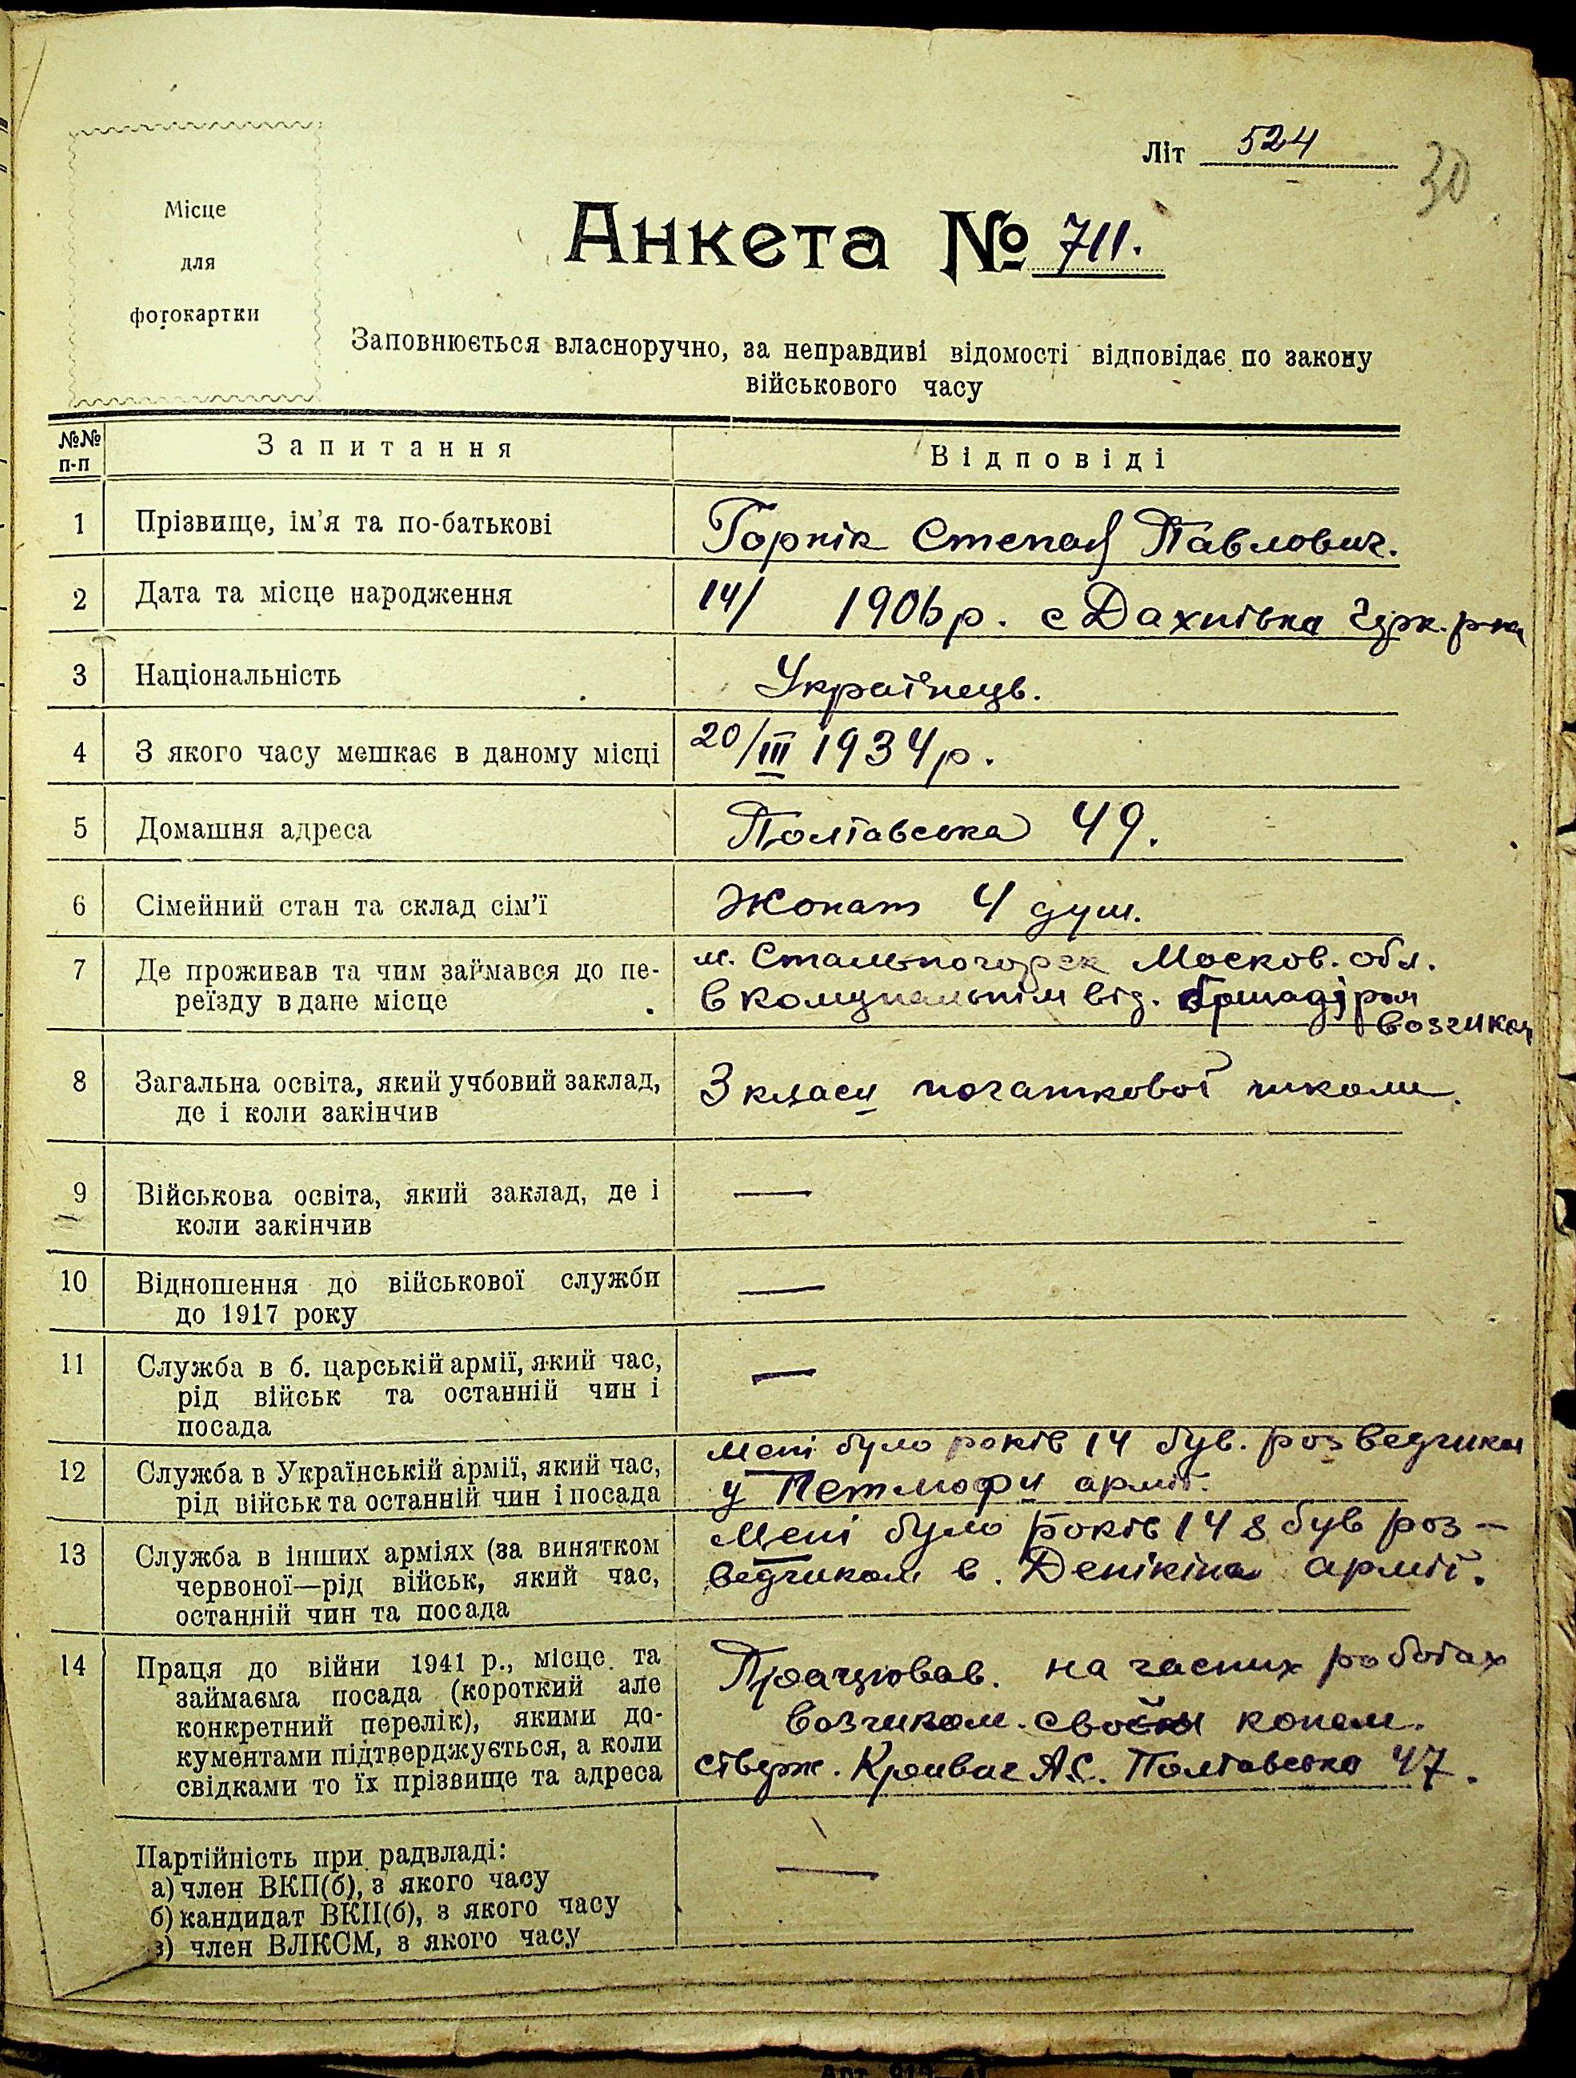 Літ 524
30
Місце
для
фотокартки
Анкета № 711.
Заповнюється власноручно, за неправдиві відомості відповідає по закону
військового часу
№№ п-п
Запитання
Відповіді
1 Прізвище, ім'я та по-батькові
Горнік Степан Павлович.
2 Дата та місце народження
14/ 1906 р. с Дахнівка Чурк. р-на
3 Національність
Українець.
4 З якого часу мешкає в даному місці
20/III 1934 р.
5 Домашня адреса
Полтавська 49.
6 Сімейний стан та склад сім'ї
Жонат 4 душ.
7 Де проживав та чим займався до пе-
реїзду в дане місце
м. Стальногорск Москов. обл.
в комунальнім від. бригадіром
возчиком
8 Загальна освіта, який учбовий заклад,
де і коли закінчив
3 класи початкової школи.
9 Військова освіта, який заклад, де і
коли закінчив
—
10 Відношення до військової служби
до 1917 року
—
11 Служба в б. царській армії, який час,
рід військ та останній чин і
посада
—
12 Служба в Українській армії, який час,
рід військ та останній чин і посада
Мені було років 14 був. розведчиком
у Петлюри армії.
13 Служба в інших арміях (за винятком
червоної—рід військ, який час,
останній чин та посада
Мені було років 14 був роз-
ведчиком в. Денікіна армії.
14 Праця до війни 1941 р., місце та
займаєма посада (короткий але
конкретний перелік), якими до-
кументами підтверджується, а коли
свідками то їх прізвище та адреса
Працював. на часних роботах
возчиком. своїм конем.
ствуж. Кривич А.С. Полтавська 47.
Партійність при радвладі:
а) член ВКП(б), з якого часу
б) кандидат ВКП(б), з якого часу
в) член ВЛКСМ, з якого часу
—